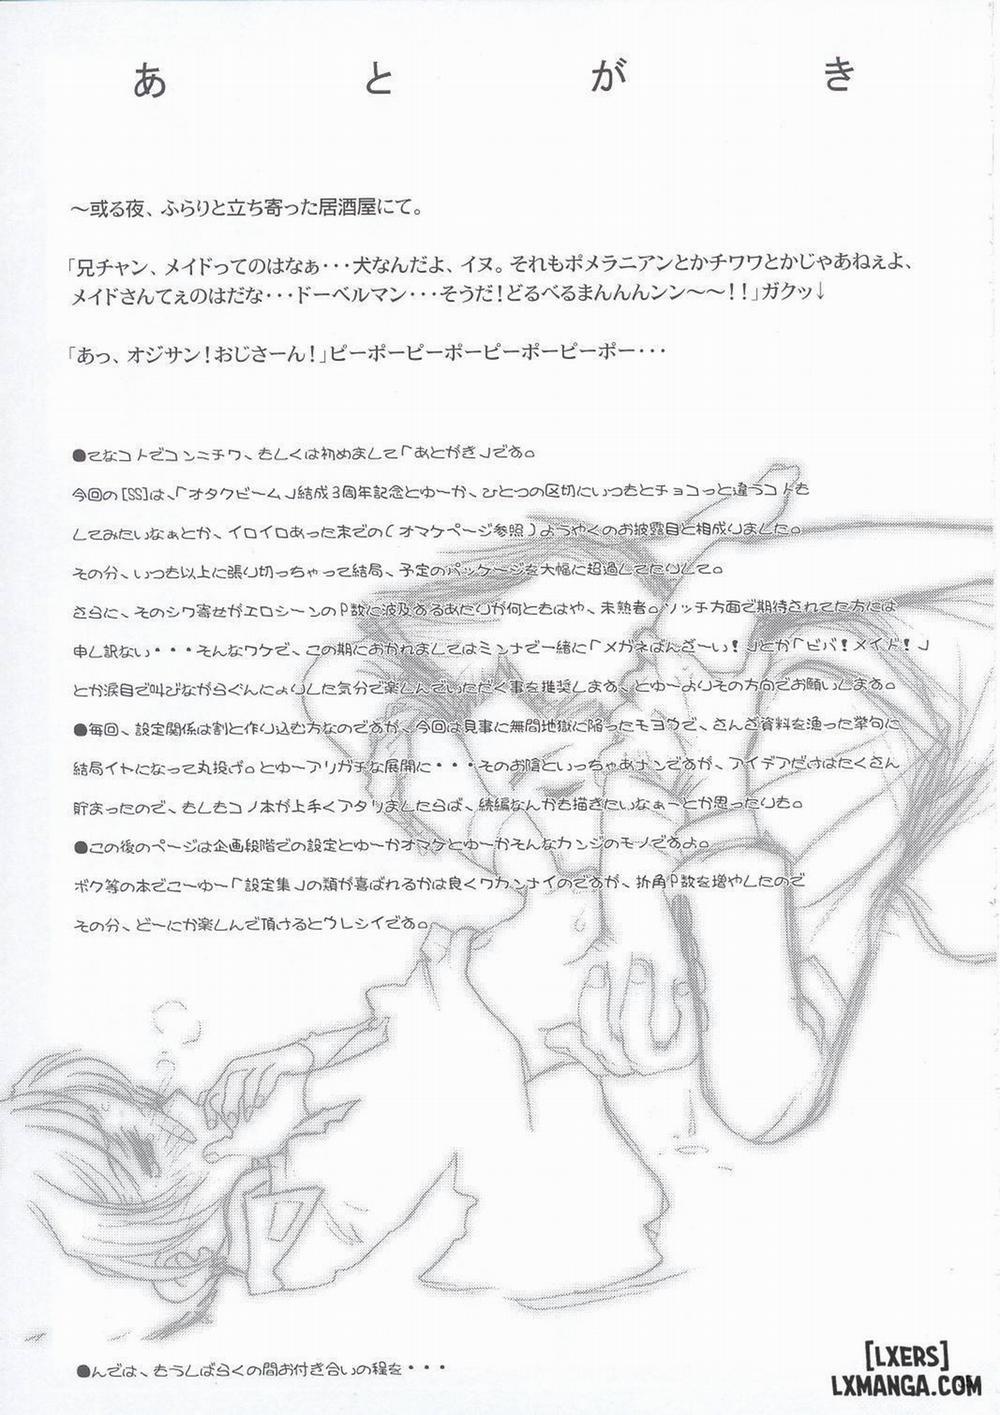 あとがき
～或る夜、ふらりと立ち寄った居酒屋にて。
「兄チャン、メイドってのはなぁ・・・犬なんだよ、イヌ。それもポメラニアンとかチワワとかじゃあねぇよ、
メイドさんてぇのはだな・・・ドーベルマン・・・そうだ！どるべるまんんんンン～～！！」ガクッ↓
「あっ、オジサン！おじさーん！」ピーポーピーポーピーポーピーポー・・・
●てなコトでコンニチワ、もしくは初めまして「あとがき」です。
今回の[SS]は、「オタクビーム」結成3周年記念とゆーか、ひとつの区切にいつもとチョコっと違うコトも
してみたいなぁとか、イロイロあった末での(オマケページ参照)ようやくのお披露目と相成りました。
その分、いつも以上に張り切っちゃって結局、予定のパッケージを大幅に超過してたりして。
さらに、そのシワ寄せがエロシーンのP数に波及するあたりが何ともはや、未熟者。ソッチ方面で期待されてた方には
申し訳ない・・・そんなワケで、この期におかれましてはミンナで一緒に「メガネばんざーい！」とか「ビバ！メイド！」
とか涙目で叫びながらぐんにょりした気分で楽しんでいただく事を推奨します、とゆーよりその方向でお願いします。
●毎回、設定関係は割と作り込む方なのですが、今回は見事に無間地獄に陥ったモヨウで、さんざ資料を漁った挙句に
結局イトになって丸投げ。とゆーアリガチな展開に・・・そのお陰といっちゃあナンですが、アイデアだけはたくさん
貯まったので、もしもコノ本が上手くアタりましたらば、続編なんかも描きたいなぁーとか思ったりも。
●この後のページは企画段階での設定とゆーかオマケとゆーかそんなカンジのモノですよ。
ボク等の本でこーゆー「設定集」の類が喜ばれるかは良くワカンナイのですが、折角P数を増やしたので
その分、どーにか楽しんで頂けるとウレシイです。
●んでは、もうしばらくの間お付き合いの程を・・・
[LXERS]
LXMANGA.COM